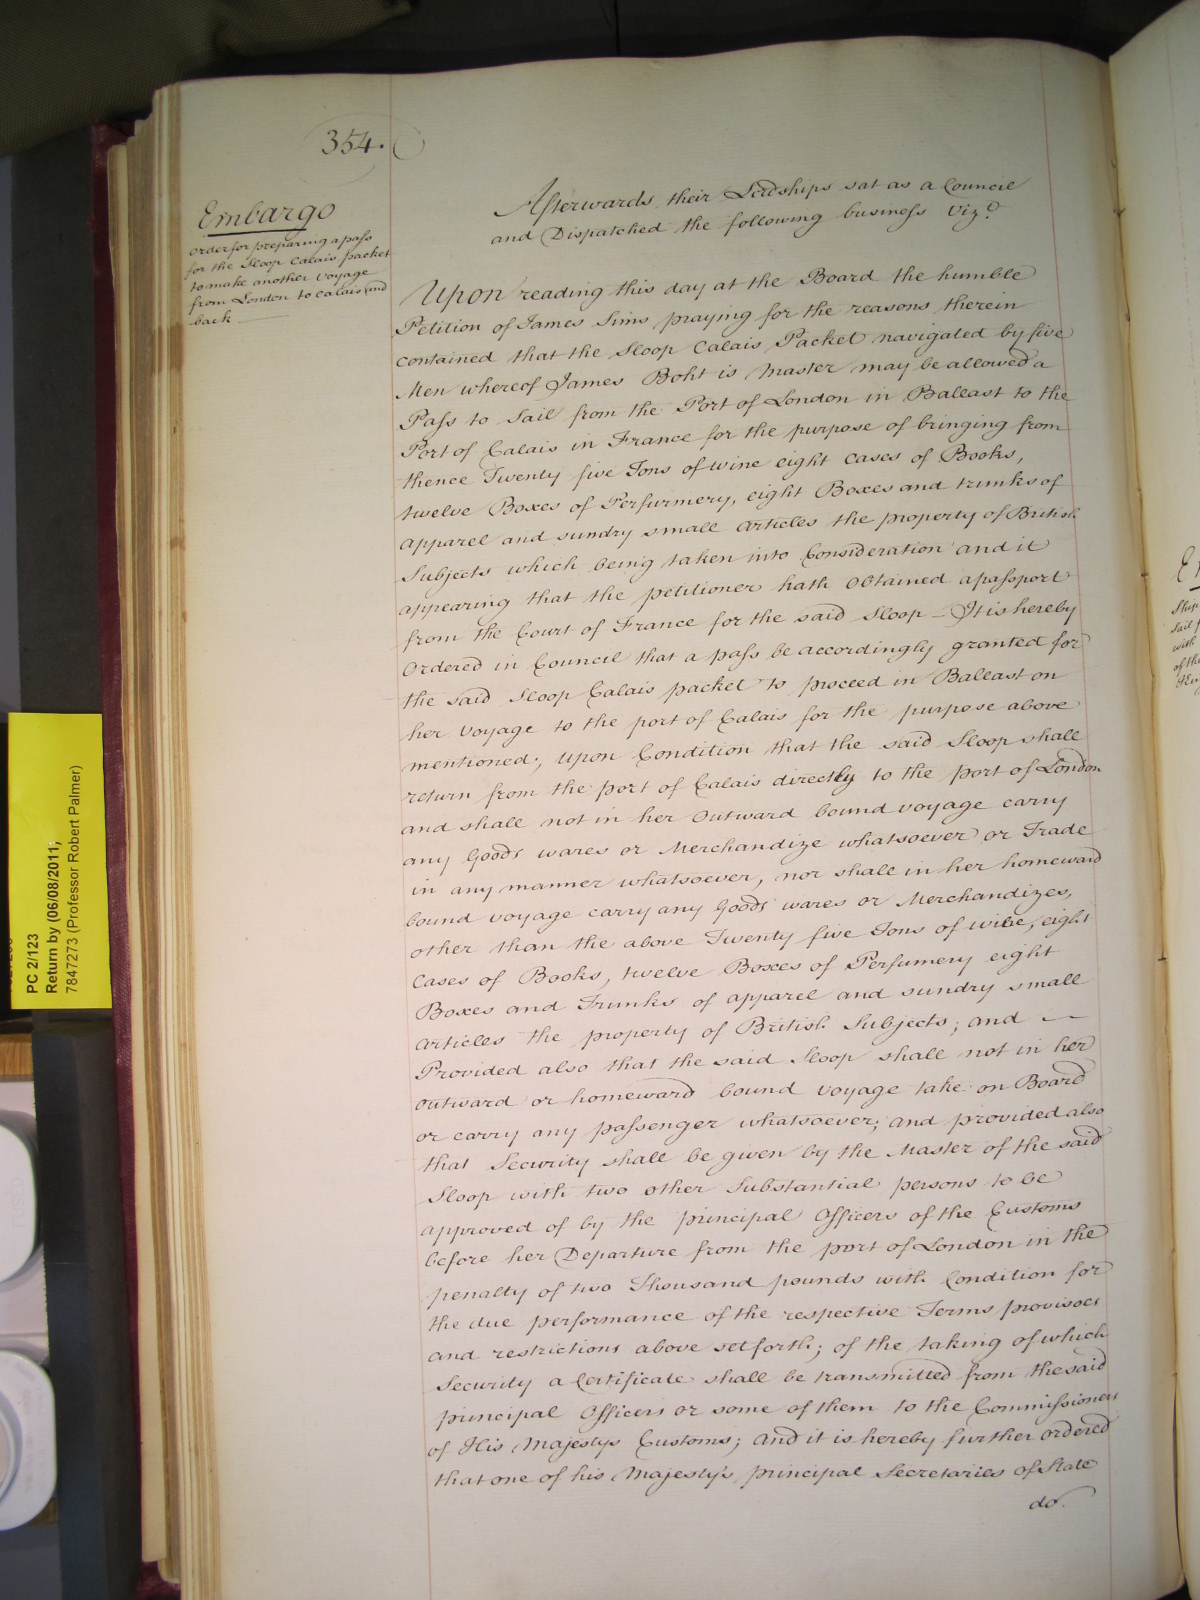 354.
Embargo
order for preparing a pass
for the Sloop Calais packet
to make another voyage
from London to Calais and
back
Afterwards their Lordships sat as a Council
and Dispatched the following business Vizt.
Upon reading this day at the Board the humble
Petition of James Sims praying for the reasons therein
contained that the Sloop Calais Packet navigated by five
Men whereof James Boht is Master may be allowed a
Pass to Sail from the Port of London in Ballast to the
Port of Calais in France for the purpose of bringing from
thence Twenty five Tons of wine eight cases of Books,
twelve Boxes of Perfurmery, eight Boxes and trunks of
apparel and sundry small articles the property of British
Subjects which being taken into Consideration and it
appearing that the petitioner hath obtained a passport
from the Court of France for the said Sloop – It is hereby
ordered in Council that a pass be accordingly granted for
the said Sloop Calais packet to proceed in Ballast on
her voyage to the port of Calais for the purpose above
mentioned; upon Condition that the said Sloop shall
return from the port of Calais directly to the port of London
and shall not in her outward bound voyage carry
any Goods wares or Merchandize whatsoever or Trade
in any manner whatsoever, nor shall in her homeward
bound voyage carry any Goods wares or Merchandizes,
other than the above Twenty five Tons of wine, eight
Cases of Books, twelve Boxes of Perfumery eight
Boxes and Trunks of apparel and sundry small
articles the property of British Subjects; and —
Provided also that the said Sloop shall not in her
outward or homeward bound voyage take on Board
or carry any passenger whatsoever; and provided also
that Security shall be given by the Master of the said
Sloop with two other Substantial persons to be
approved of by the principal Officers of the Customs
before her Departure from the port of London in the
penalty of two Thousand pounds with Condition for
the due performance of the respective Terms provisoes
and restrictions above set forth; of the taking of which
Security a Certificate shall be transmitted from the said
principal Officers or some of them to the Commissioners
of His Majestys Customs; And it is hereby further ordered
that one of his Majesty's principal Secretaries of State
do.
PC 2/123
Return by (06/08/2011;
7847273 (Professor Robert Palmer)